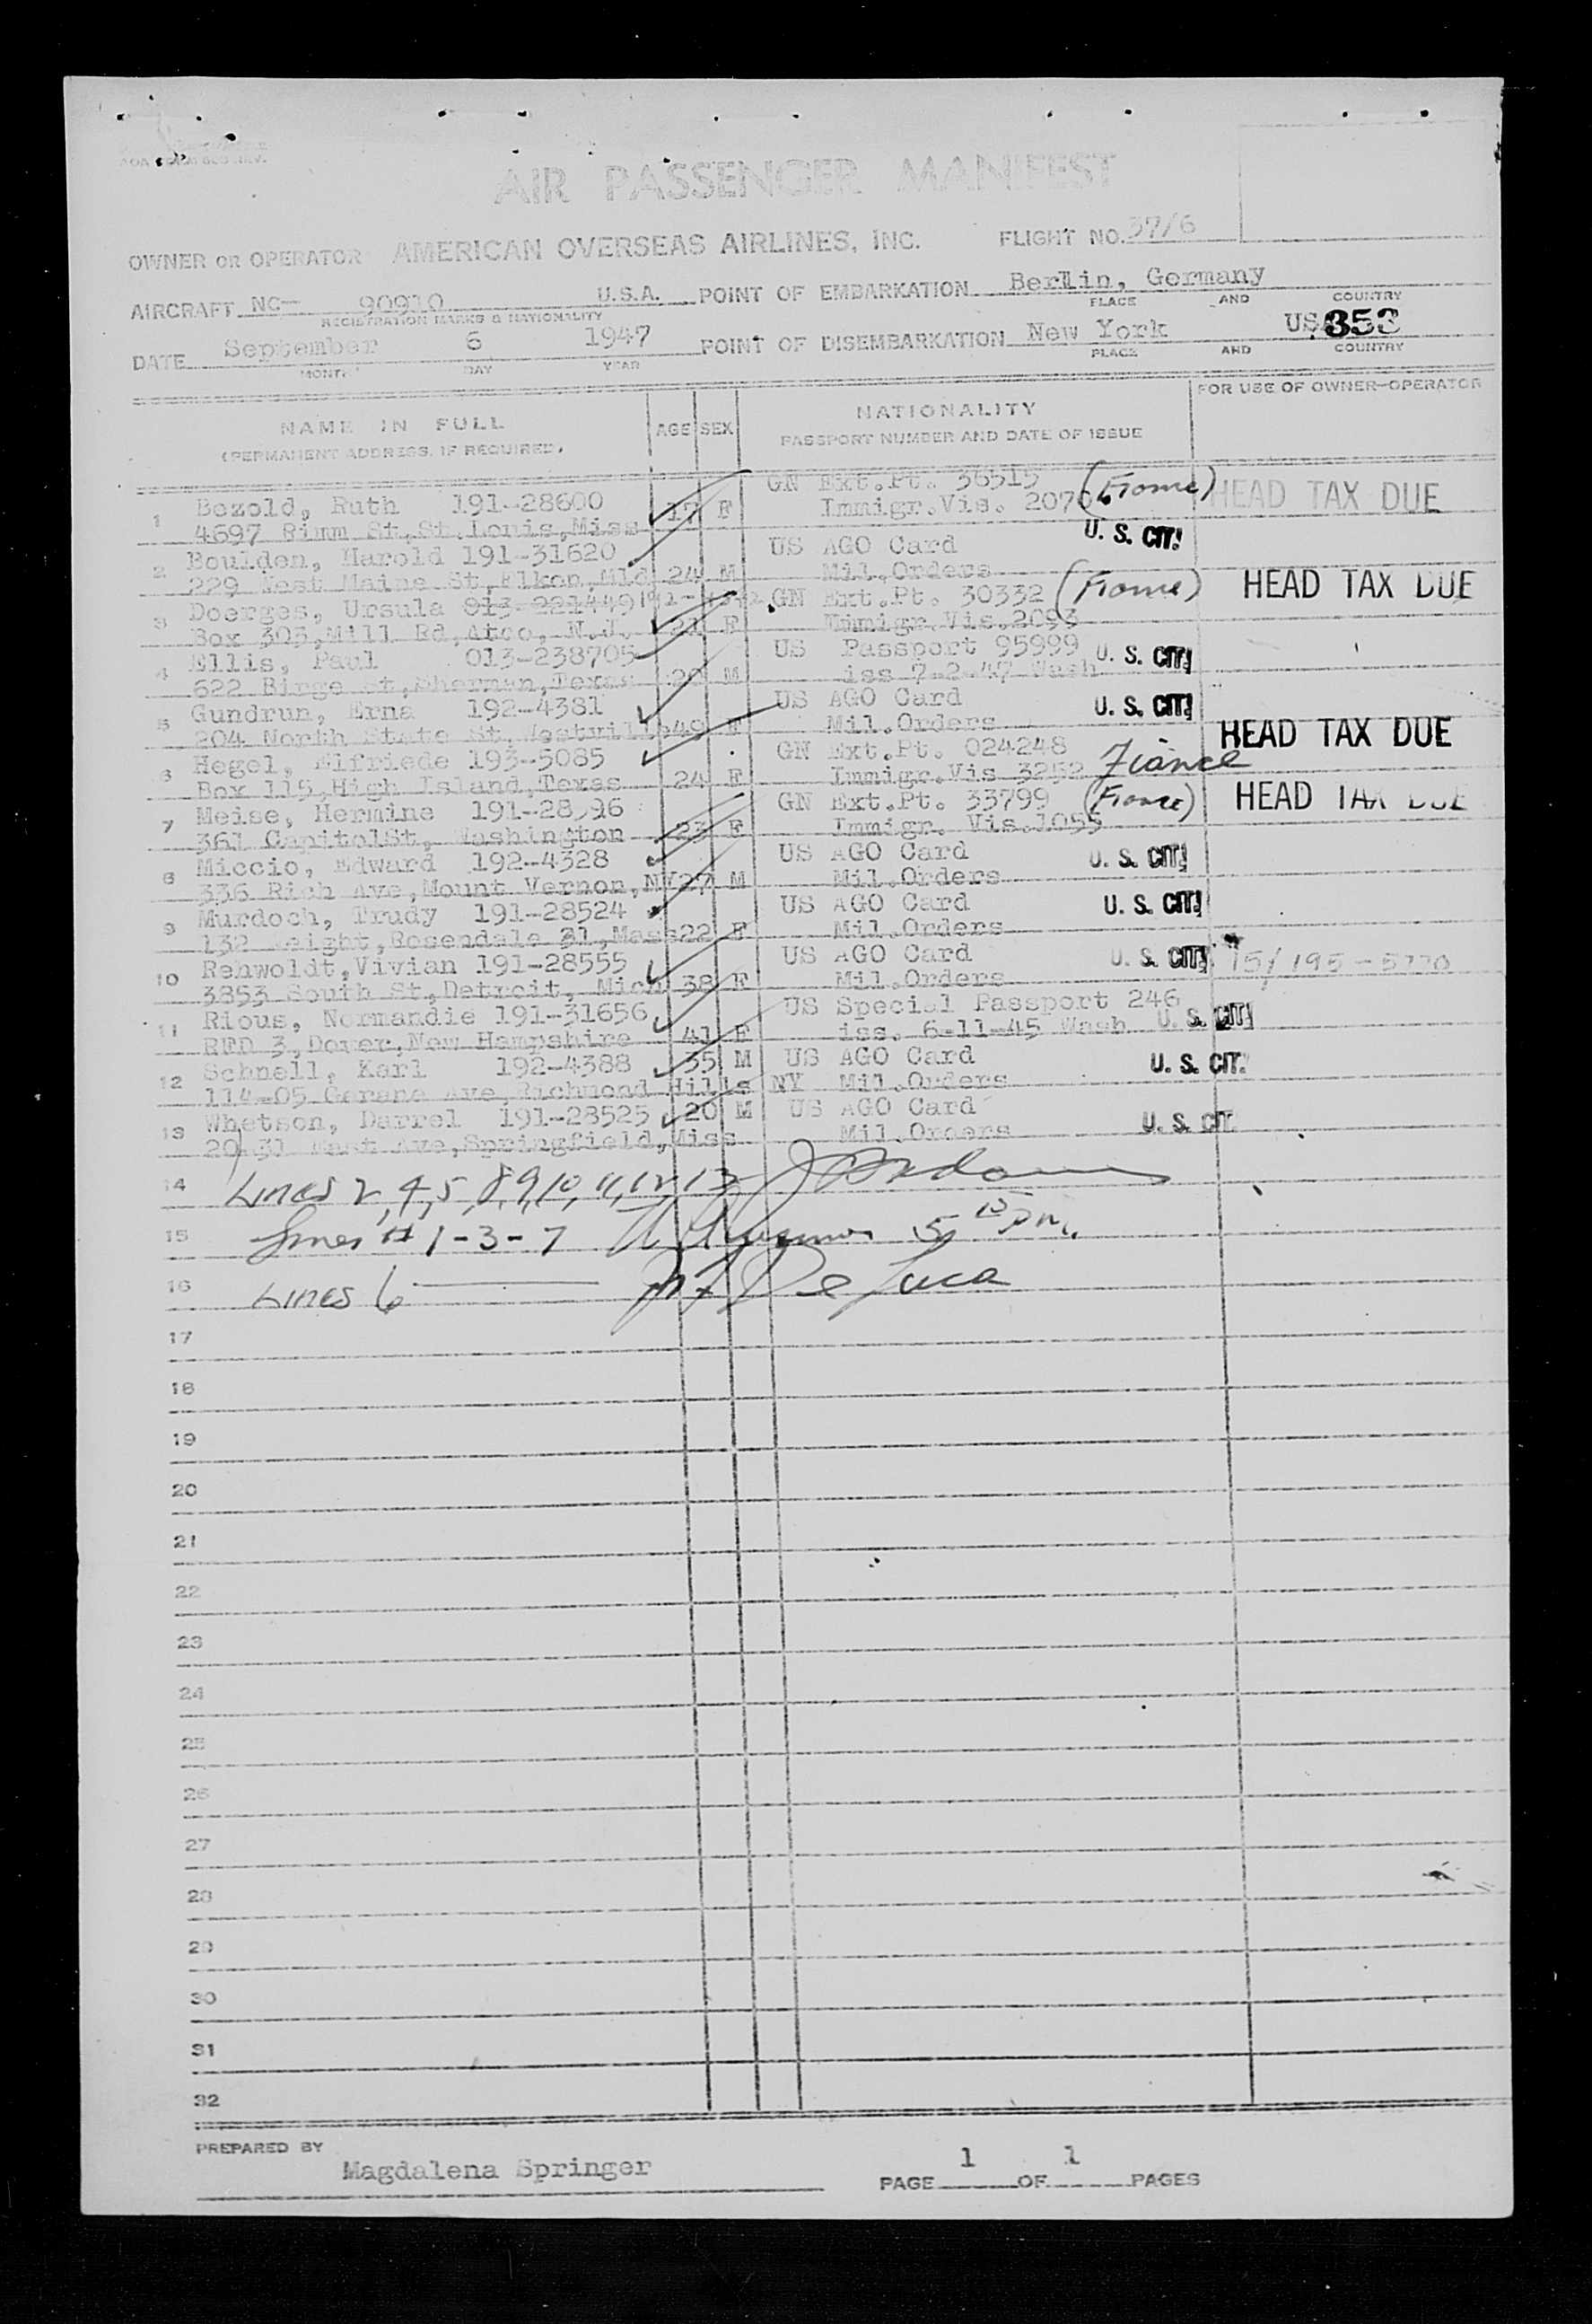 AIR PASSENGER MANIFEST
OWNER OR OPERATOR AMERICAN OVERSEAS AIRLINES, INC. FLIGHT NO. 37/6
AIRCRAFT NC— 90910 U.S.A. POINT OF EMBARKATION Berlin, Germany
REGISTRATION MARKS & NATIONALITY PLACE AND COUNTRY
DATE September 6 1947 POINT OF DISEMBARKATION New York USA 353
MONTH DAY YEAR PLACE AND COUNTRY
FOR USE OF OWNER-OPERATOR
NAME IN FULL AGE SEX NATIONALITY
(PERMANENT ADDRESS, IF REQUIRED) PASSPORT NUMBER AND DATE OF ISSUE
1 Bezold, Ruth 191-28600 17 F GN Ext.Pt. 36515 HEAD TAX DUE
4697 Rimm St,St.Louis,Miss Immigr.Vis. 2070
2 Boulden, Harold 191-31620 US AGO Card U. S. CIT.
229 West Maine St,Elkon,Mld 24 M Mil.Orders
3 Doerges, Ursula 013-221449 GN Ext.Pt. 30332 HEAD TAX DUE
Box 303,Mill Rd,Atco, N.J. 21 F Immigr.Vis.2093
4 Ellis, Paul 013-238705 US Passport 95999 U. S. CIT.
622 Birge St,Sherman,Texas 20 M iss 7-2-47 Wash
5 Gundrun, Erna 192-4381 US AGO Card U. S. CIT.
204 North State St, 49 F Mil.Orders
6 Hegel, Elfriede 193-5085 GN Ext.Pt. 024248 Fiance HEAD TAX DUE
Box 115,High Island,Texas 24 F Immigr.Vis 3252
7 Meise, Hermine 191-28 96 GN Ext.Pt. 33799 HEAD TAX DUE
361 CapitolSt, Washington 23 F Immigr. Vis.1055
8 Miccio, Edward 192-4328 US AGO Card U. S. CIT.
336 Rich Ave,Mount Vernon,NY 27 M Mil.Orders
9 Murdoch, Trudy 191-28524 US AGO Card U. S. CIT.
132 Weight,Rosendale 31,Mass 22 F Mil.Orders
10 Rehwoldt,Vivian 191-28555 US AGO Card U. S. CIT.
3853 South St,Detroit, Mich 38 F Mil.Orders
11 Rious, Normandie 191-31656 US Special Passport 246
RFD 3,Dover,New Hampshire 41 F iss. 6-11-45 Wash U. S. CIT.
12 Schnell, Karl 192-4388 35 M US AGO Card U. S. CIT.
114-05 Ave,Richmond Hills NY Mil.Orders
13 Whetson, Darrel 191-28525 20 M US AGO Card
20 31 East Ave,Springfield,Miss Mil.Orders U. S. CIT.
14 Lines 2,4,5,8,9,10,11,12,13
15 Lines # 1-3-7 5 15 pm.
16 Lines 6 De Luca
17
18
19
20
21
22
23
24
25
26
27
28
29
30
31
32
PREPARED BY Magdalena Springer
PAGE 1 OF 1 PAGES